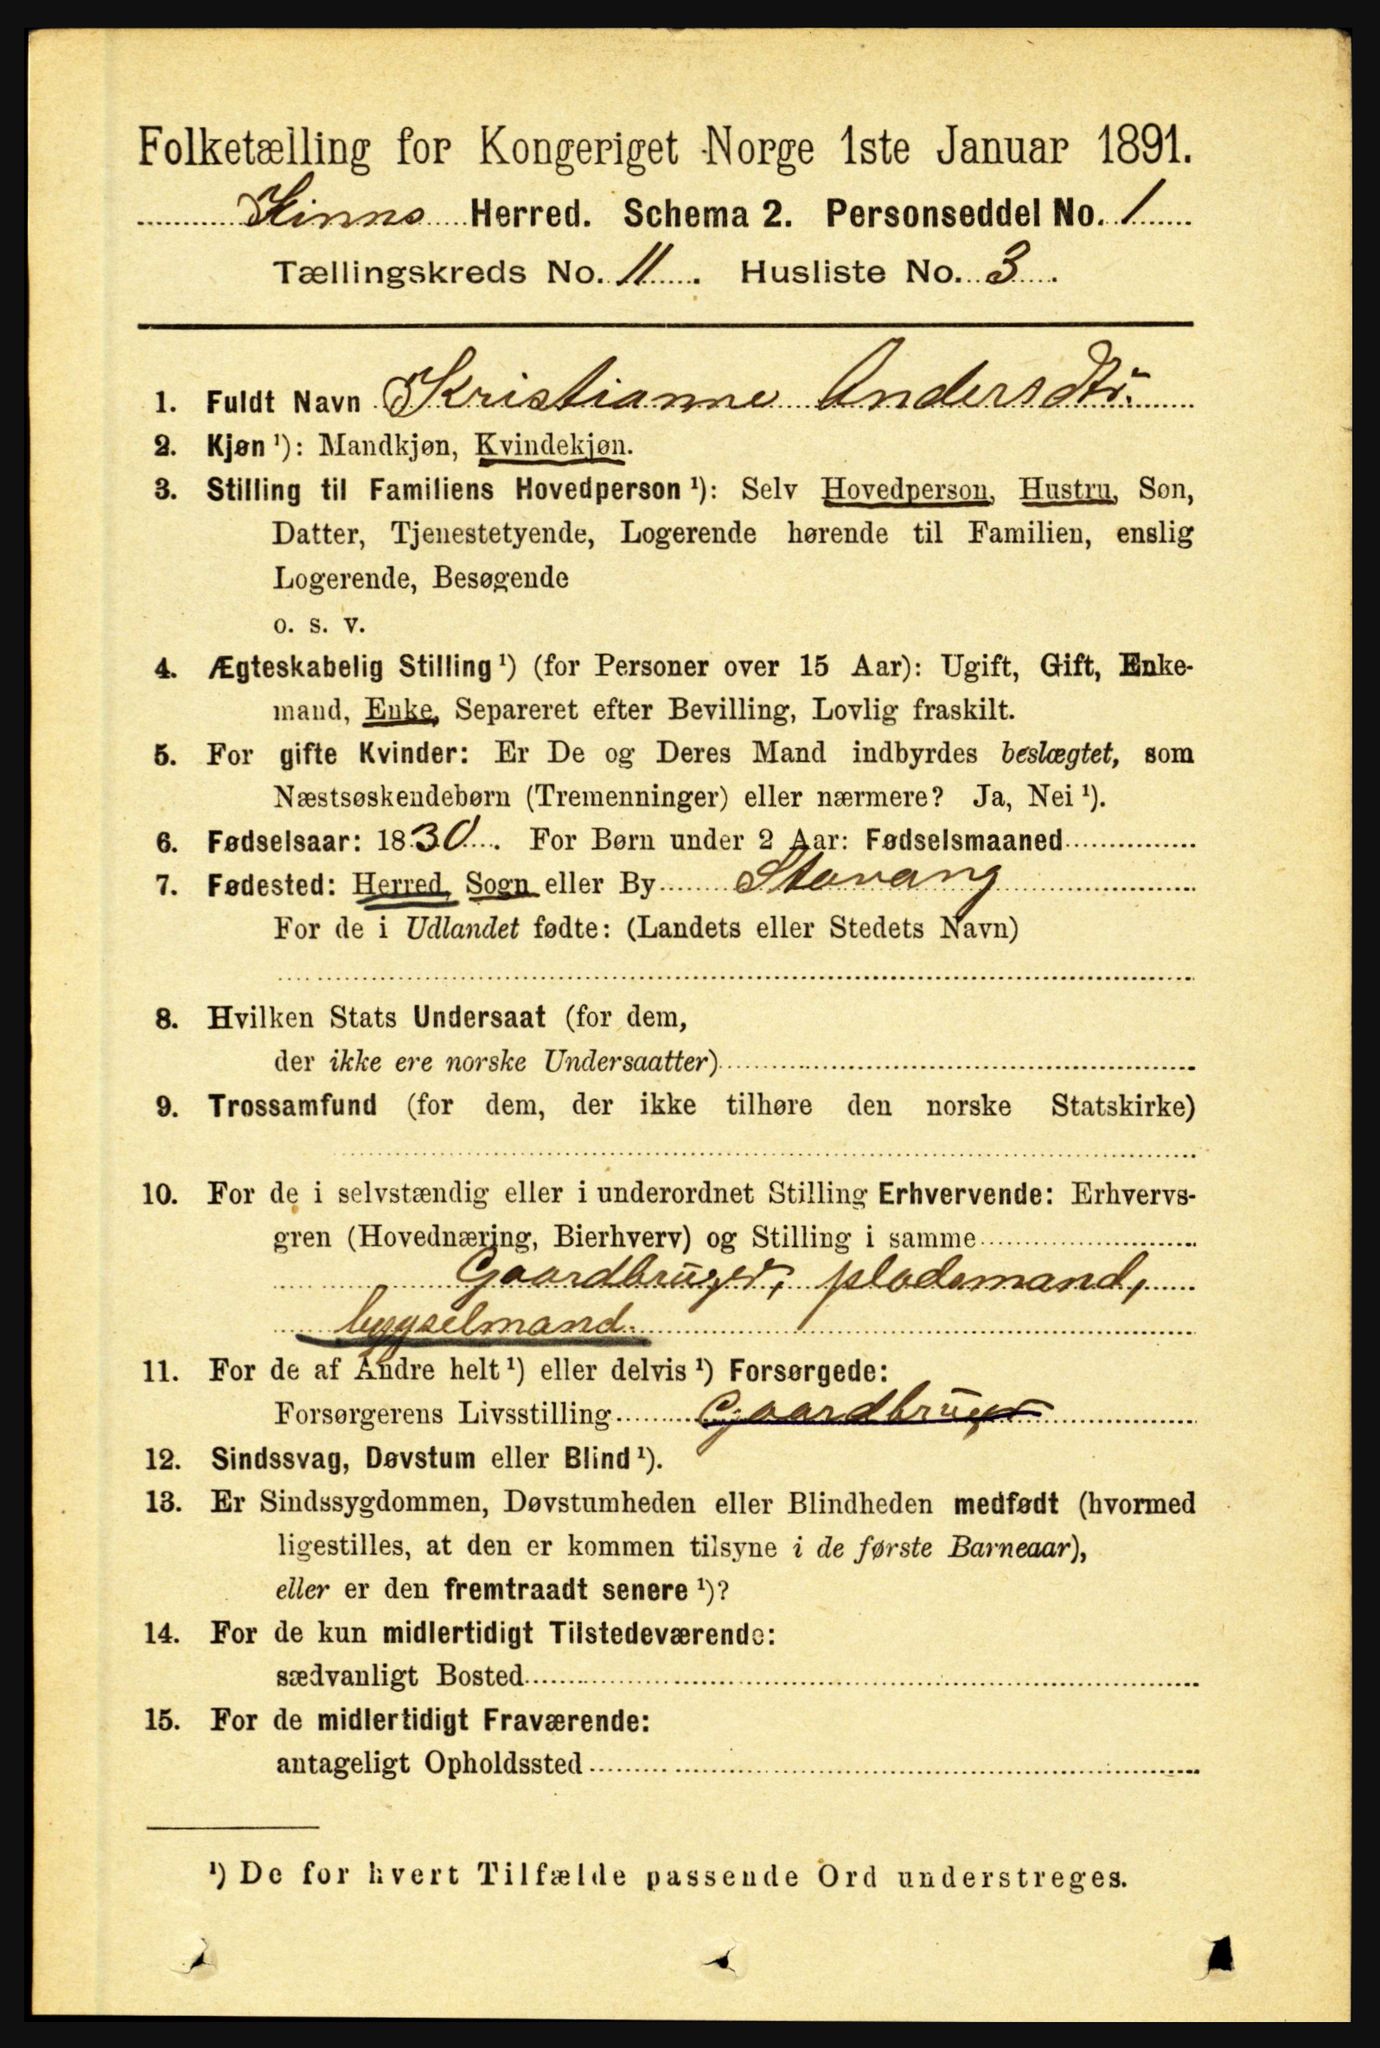 Folketælling for Kongeriget Norge 1ste Januar 1891.
Kinns Herred. Schema 2. Personseddel No. 1
Tællingskreds No. 11. Husliste No. 3.
1. Fuldt Navn Kristianne Andersdtr.
2. Kjøn ¹): Mandkjøn, Kvindekjøn.
3. Stilling til Familiens Hovedperson ¹): Selv Hovedperson, Hustru, Søn,
Datter, Tjenestetyende, Logerende hørende til Familien, enslig
Logerende, Besøgende
o. s. v.
4. Ægteskabelig Stilling ¹) (for Personer over 15 Aar): Ugift, Gift, Enke-
mand, Enke, Separeret efter Bevilling, Lovlig fraskilt.
5. For gifte Kvinder: Er De og Deres Mand indbyrdes beslægtet, som
Næstsøskendebørn (Tremenninger) eller nærmere? Ja, Nei ¹).
6. Fødselsaar: 1830. For Børn under 2 Aar: Fødselsmaaned
7. Fødested: Herred, Sogn eller By Stavang
For de i Udlandet fødte: (Landets eller Stedets Navn)
8. Hvilken Stats Undersaat (for dem,
der ikke ere norske Undersaatter)
9. Trossamfund (for dem, der ikke tilhøre den norske Statskirke)
10. For de i selvstændig eller i underordnet Stilling Erhvervende: Erhvervs-
gren (Hovednæring, Bierhverv) og Stilling i samme
Gaardbruger, pladsmand,
bygselmand.
11. For de af Andre helt ¹) eller delvis ¹) Forsørgede:
Forsørgerens Livsstilling Gaardbruger
12. Sindssvag, Døvstum eller Blind ¹).
13. Er Sindssygdommen, Døvstumheden eller Blindheden medfødt (hvormed
ligestilles, at den er kommen tilsyne i de første Barneaar),
eller er den fremtraadt senere ¹)?
14. For de kun midlertidigt Tilstedeværende:
sædvanligt Bosted
15. For de midlertidigt Fraværende:
antageligt Opholdssted
¹) De for hvert Tilfælde passende Ord understreges.